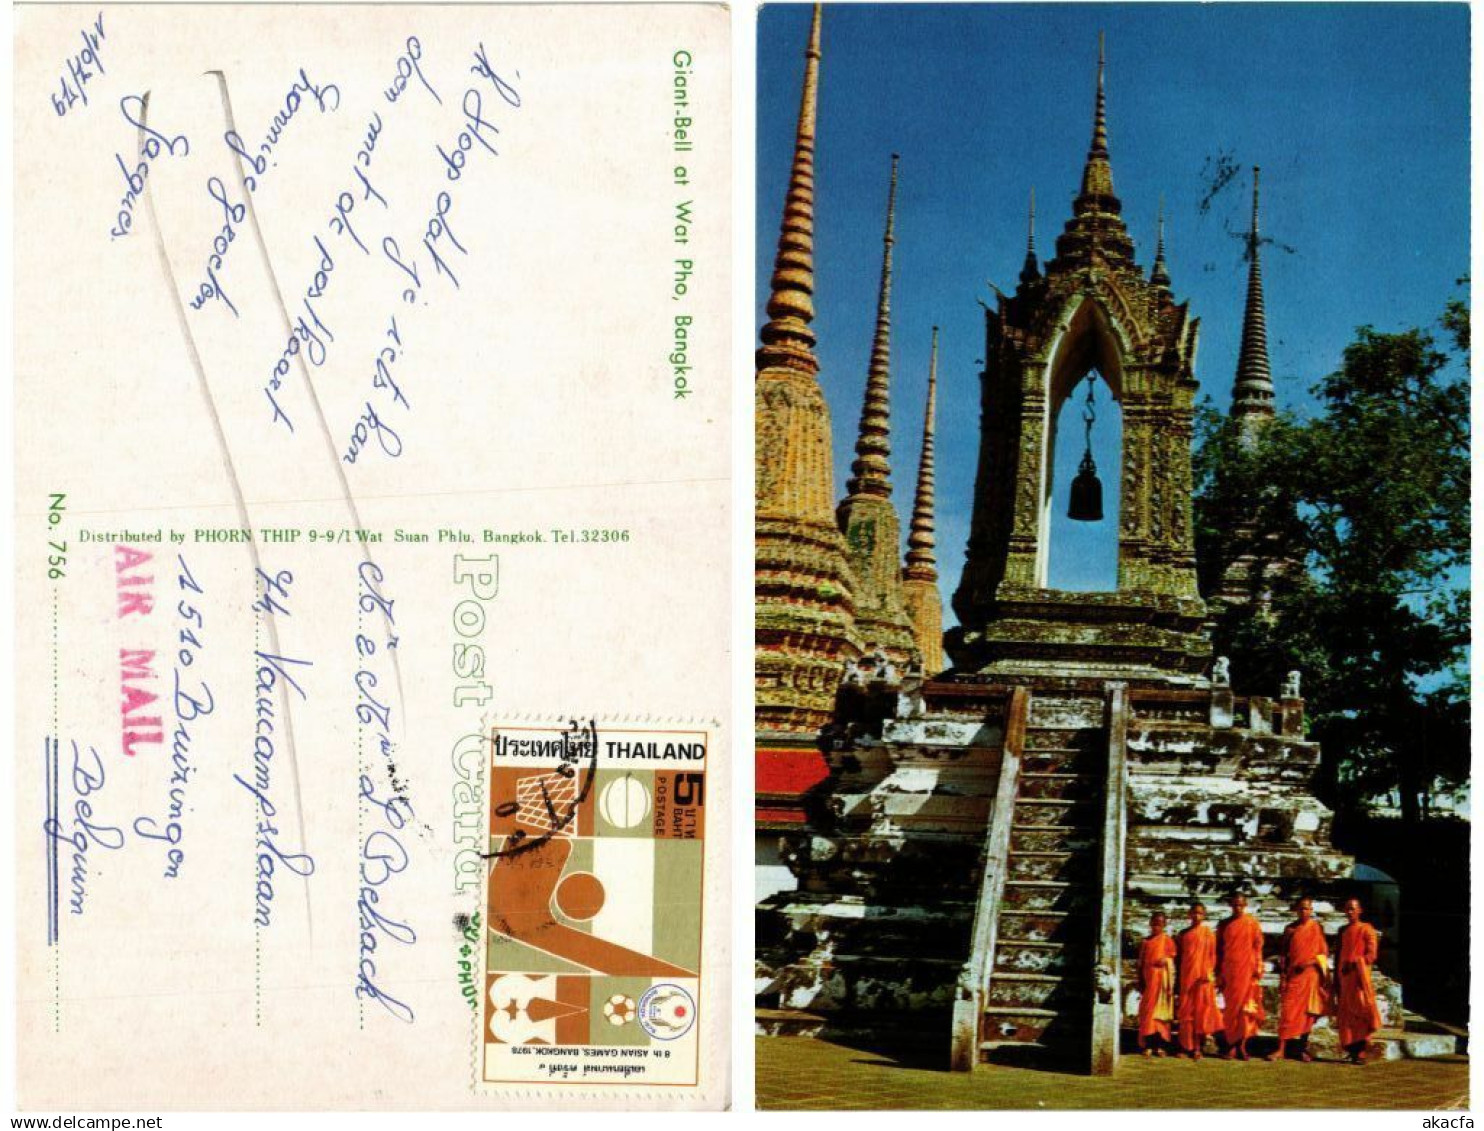 Giant-Bell at Wat Pho, Bangkok
ik Hoop dat je iets kan
doen met de postkaart
hommige groeten
Jacques.
11/07/79
Distributed by PHORN THIP 9-9/1 Wat Suan Phlu, Bangkok. Tel.32306
No. 756
Post Card
AIR MAIL
Belsack
44, Vaucampslaan
1510 Buizingen
Belguim
ประเทศไทย THAILAND
5
บาท
BAHT
POSTAGE
เอเชียนเกมส์ ครั้งที่ ๘
8 th ASIAN GAMES, BANGKOK, 1978
akacfa
https://www.delcampe.net